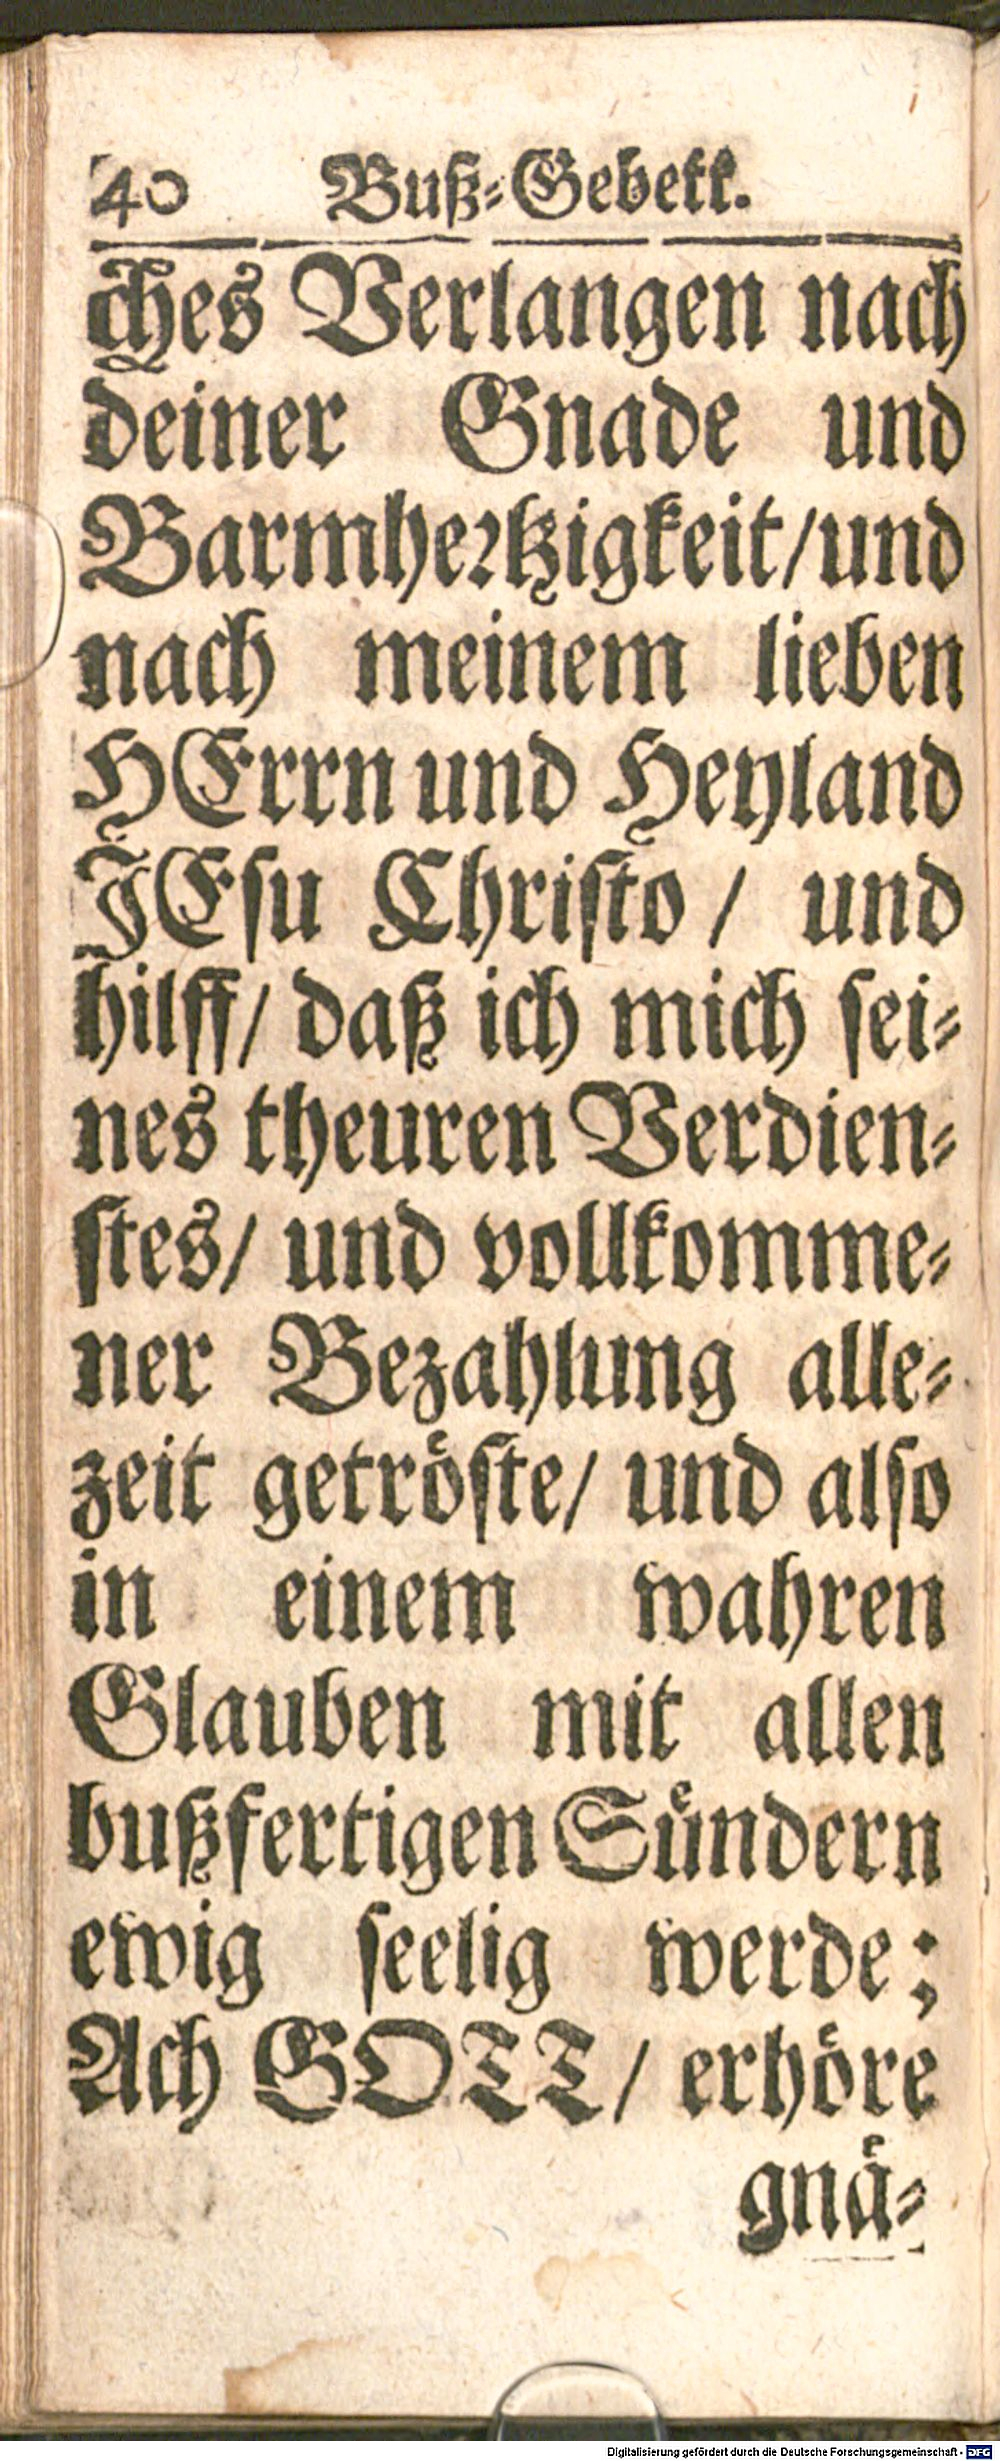 40 Buß⸗Gebett.
ches Verlangen nach
deiner Gnade und
Barmheꝛtzigkeit/und
nach meinem lieben
HErrn und Heyland
JEſu Chriſto / und
hilff/ daß ich mich ſei⸗
nes theuren Verdien⸗
ſtes/ und vollkomme⸗
ner Bezahlung alle⸗
zeit getroͤſte/ und alſo
in einem wahren
Glauben mit allen
bußfertigen Suͤndern
ewig ſeelig werde;
Ach GOTT/ erhoͤre
gnaͤ⸗
Digitalisierung gefördert durch die Deutsche Forschungsgemeinschaft - DFG